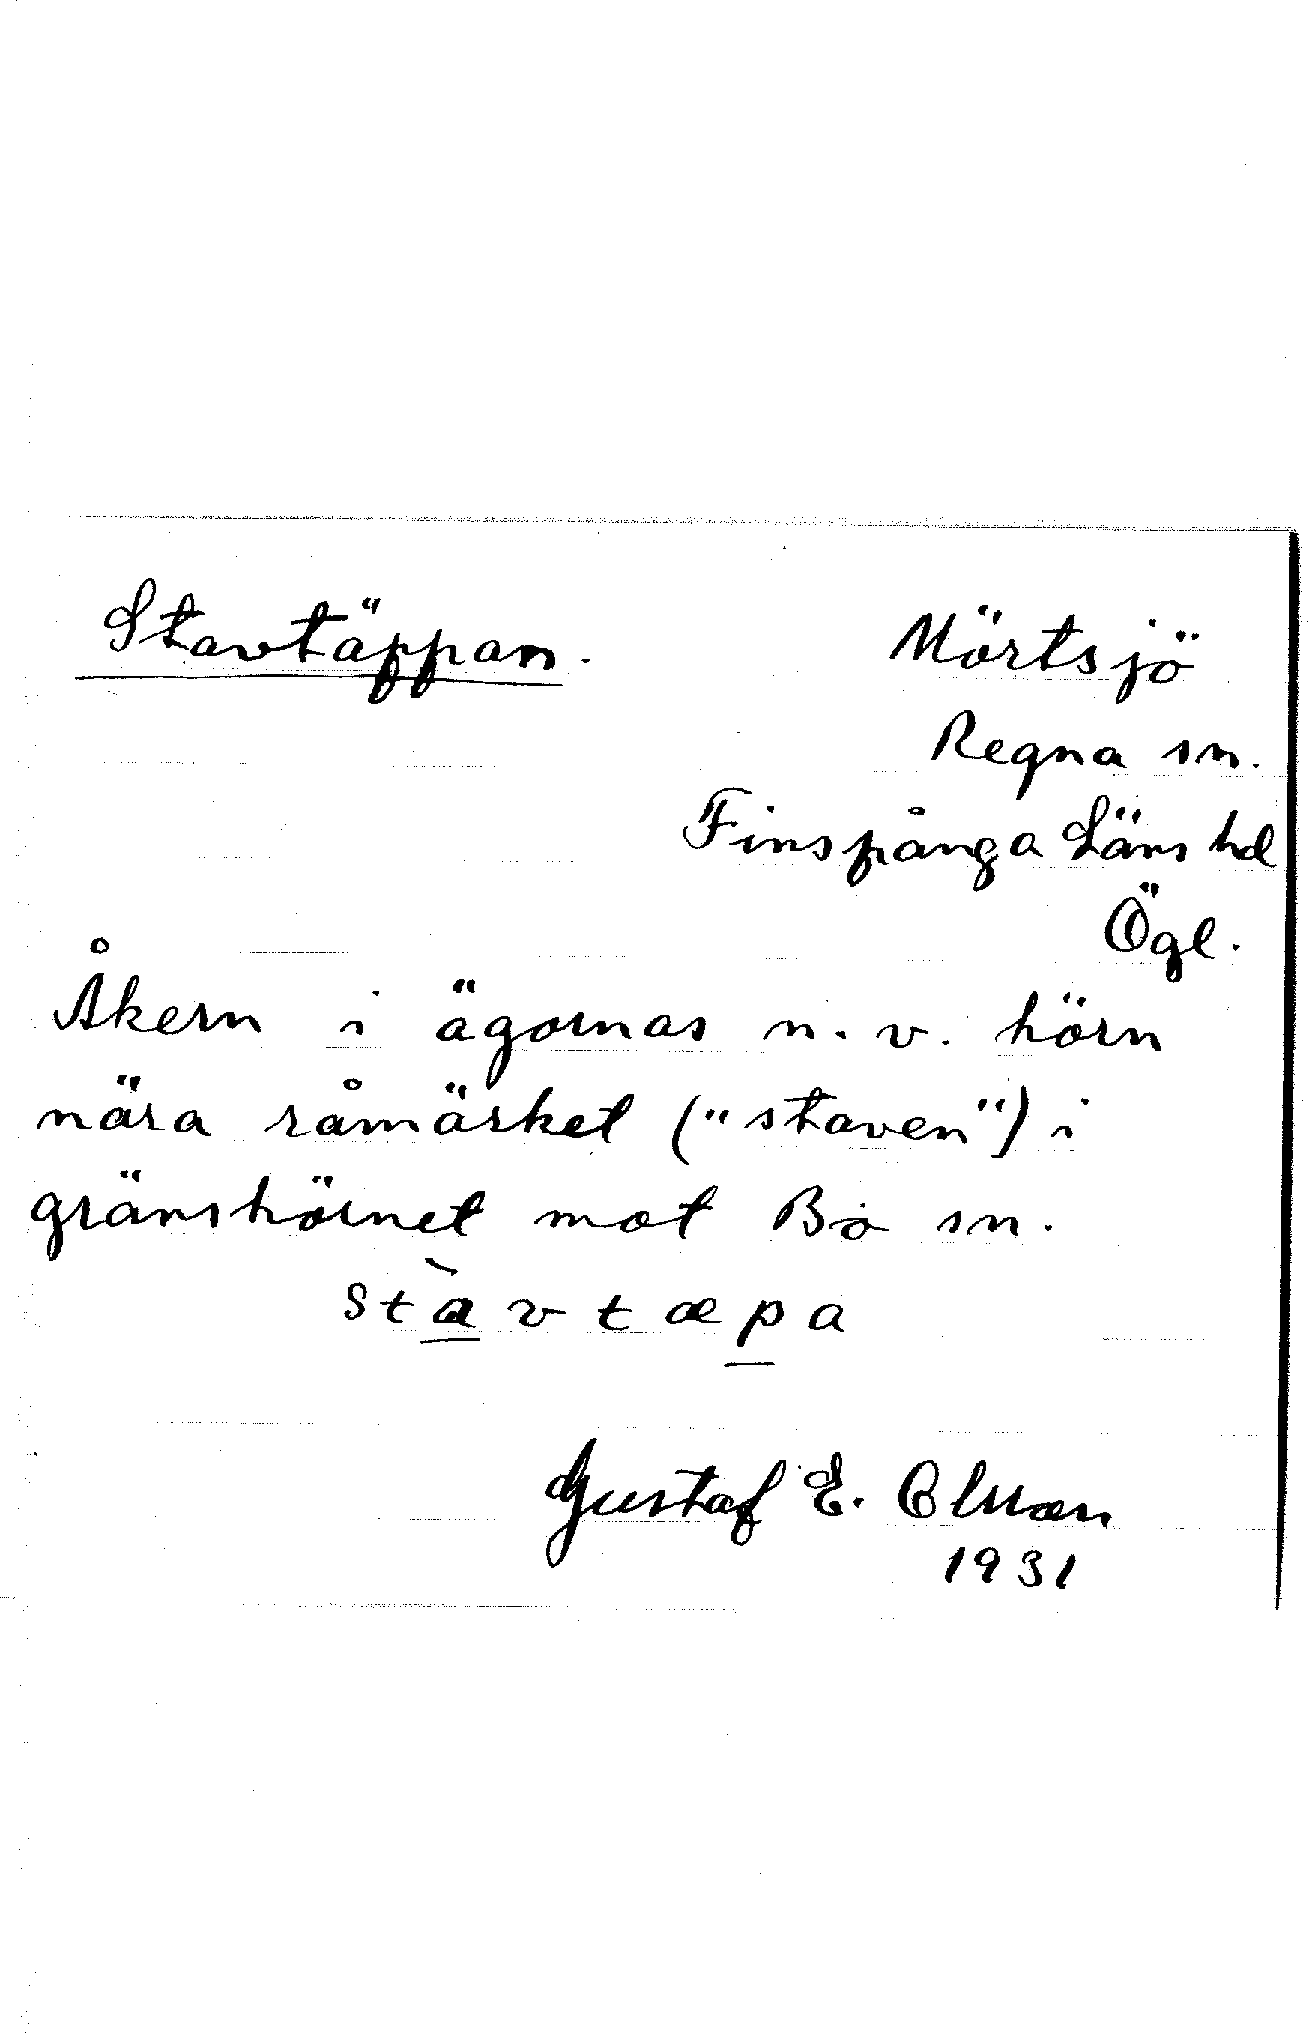 Stavtäppan.
Mörtsjö
Regna sn.
Finspånga Läns hd
Ögl.
Åkern i ägornas n. v. hörn
nära råmärket ("staven") i
gränshörnet mot Bo sn.
stàvtæpa
Gustaf E. Olsson
1931